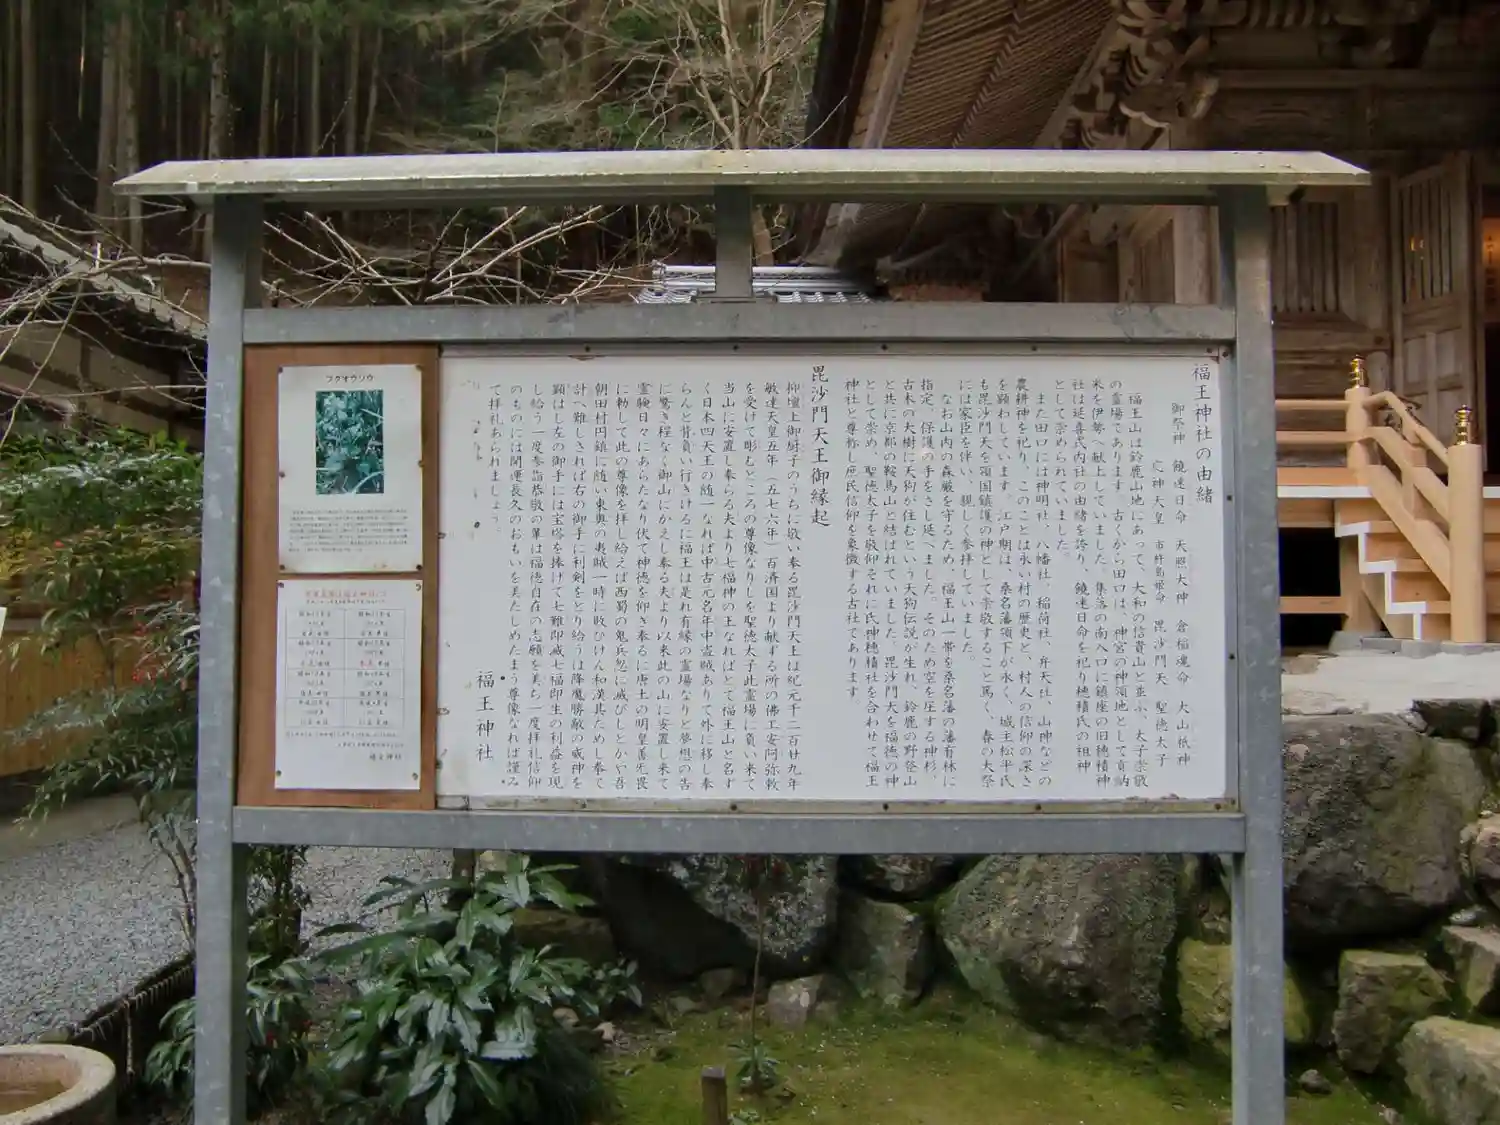 福王神社の由緒
御祭神 饒速日命 天照大神 倉稲魂命 大山祇神
応神大皇 市杵島姫命 毘沙門天 聖徳太子
福王山は鈴鹿山地にあって、大和の信貴山と並ぶ、太子崇敬
の霊場であります。古くから田口は、神宮の神領地として貢納
米を伊勢へ献上していました。集落の南入口に鎮座の旧穂積神
社は延喜式内社の由緒を誇り、饒速日命を祀り穂積氏の祖神
として崇められていました。
また田口には神明社、八幡社、稲荷社、弁天社、山神などの
農耕神を祀り、このことは永い村の歴史と、村人の信仰の深さ
を顕わしています。江戸期は、桑名藩領下が永く、城主松平氏
も毘沙門天を領国鎮護の神として崇敬すること篤く、春の大祭
には家臣を伴い、親しく参拝していました。
なお山内の森厳を守るため、福王山一帯を桑名藩の藩有林に
指定、保護の手をさし延べました。そのため空を圧する神杉、
古木の大樹に天狗が住むという天狗伝説が生れ、鈴鹿の野登山
と共に京都の鞍馬山と結ばれていました。毘沙門天を福徳の神
として崇め、聖徳太子を敬仰それに氏神穂積社を合わせて福王
神社と尊称し庶民信仰を象徴する古社であります。
毘沙門天王御縁起
抑壇上御厨子のうちに敬い奉る毘沙門天王は紀元千二百廿九年
敏達天皇五年(五七六年)百済国より献ずる所の佛工安阿弥敕
を受けて彫むところの尊像なりしを聖徳太子此霊場に負い来て
当山に安置し奉らる夫より七福神の王なればとて福王山と名す
く日本四天王の随一なれば中古元名年中盗賊ありて外に移し奉
らんと背負い行きけるに福王は是れ有縁の霊場なりと夢想の告
に驚き程なく御山にかえし奉る夫より以来此の山に安置し来て
霊験日々にあらたなり伏て神徳を仰ぎ奉るに唐土の明皇善旡畏
に勅して此の尊像を拝し給えば西蜀の鬼兵忽に滅びしとかや吾
朝田村円鎮に随い東奥の夷賊一時に敗ひけん和漢其ためし奉て
計へ難しされば右の御手に利剣をとり給うは降魔勝敵の威神を
顕はし左の御手には宝塔を捧げて七難即滅七福即生の利益を現
し給う一度参詣恭敬の輩は福徳自在の志願を美ち一度拝礼信仰
のものには開運長久のおもいを美たしめたまう尊像なれば謹み
て拝礼あられましょう。
福王神社
フクオウソウ
福王神社